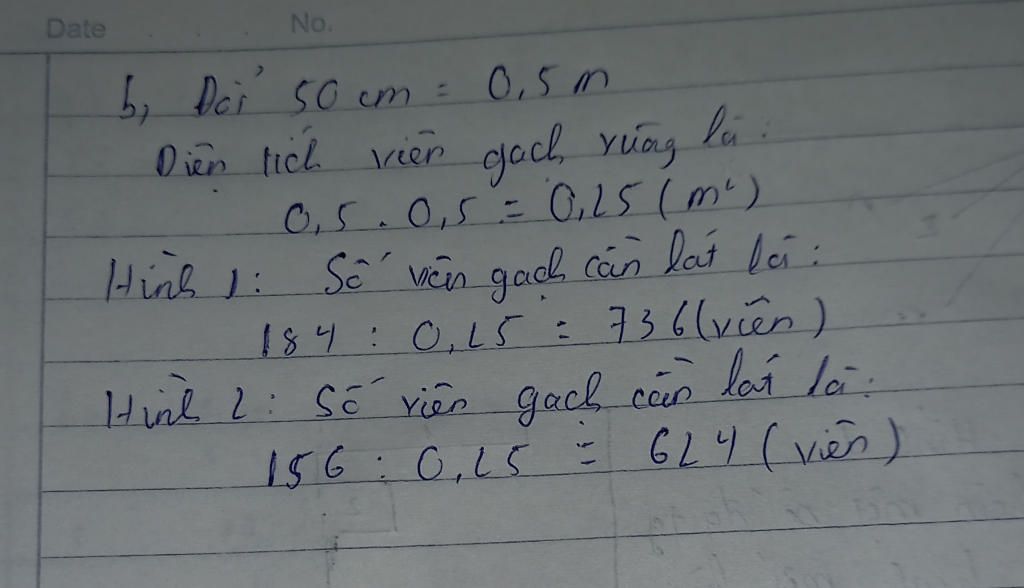 Date No.
b, Đổi 50 cm = 0,5 m
Diện tích viên gạch vuông là:
0,5 . 0,5 = 0,25 (m²)
Hình 1: Số viên gạch cần lát là:
184 : 0,25 = 736 (viên)
Hình 2: Số viên gạch cần lát là:
156 : 0,25 = 624 (viên)